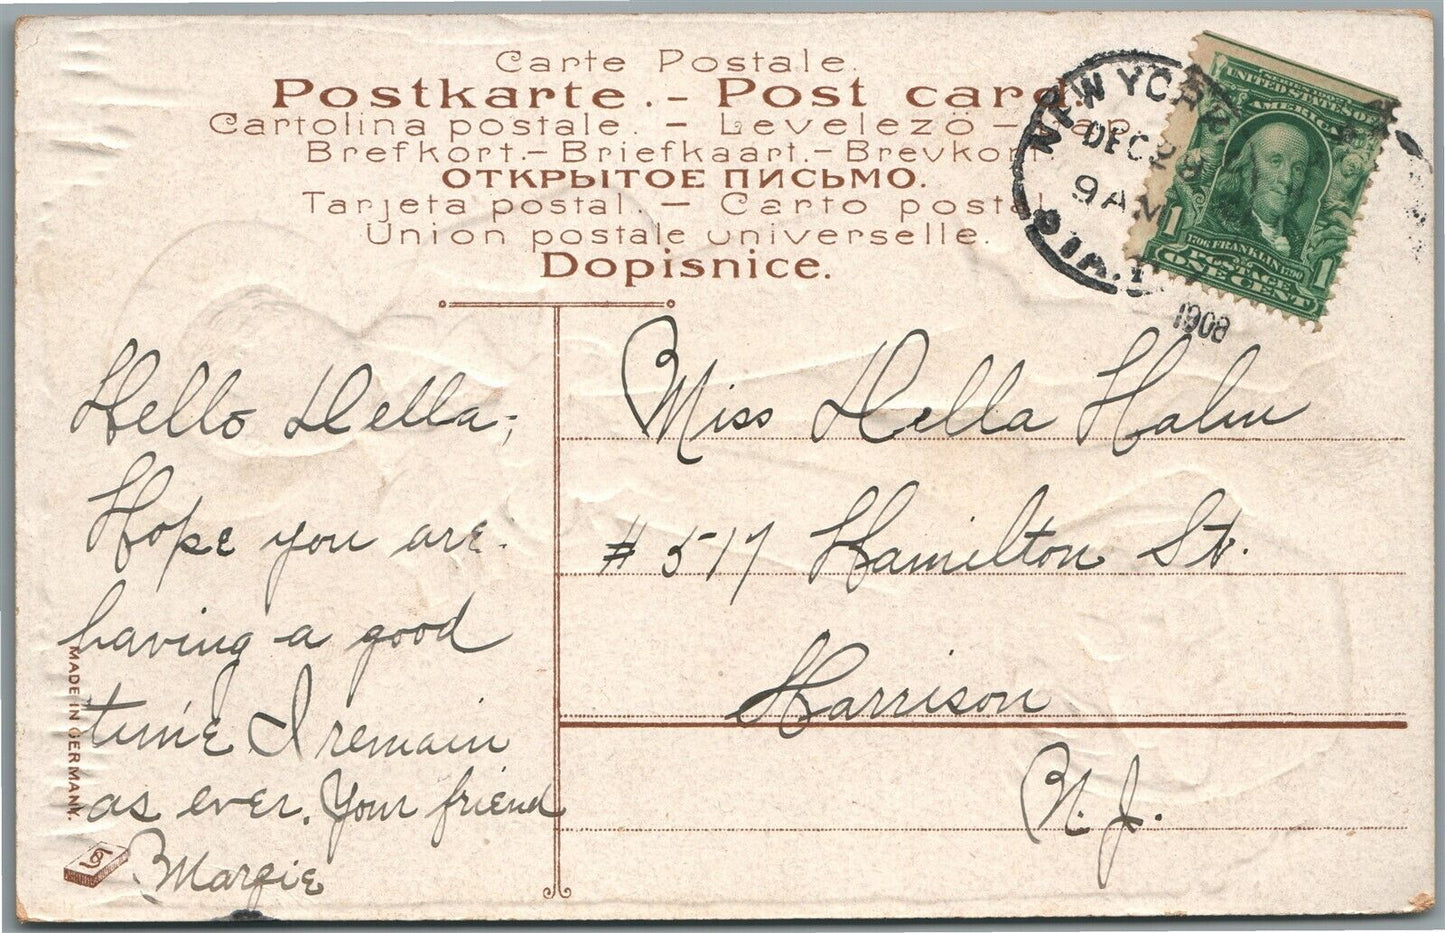 Carte Postale.
Postkarte. - Post card.
Cartolina postale. - Levelezö - Lap.
Brefkort.- Briefkaart.- Brevkort.
ОТКРЫТОЕ ПИСЬМО.
Tarjeta postal. - Carto postal.
Union postale universelle.
Dopisnice.
NEW YORK
DEC 29
9 AM
STA.
1908
SERIES 1902
UNITED STATES OF
AMERICA
1706 FRANKLIN 1790
POSTAGE
1 ONE CENT 1
Hello Della,
Hope you are.
having a good
time I remain
as ever. Your friend
Margie
Miss Della Halm
# 517 Hamilton St.
Harrison
N. J.
MADE IN GERMANY.